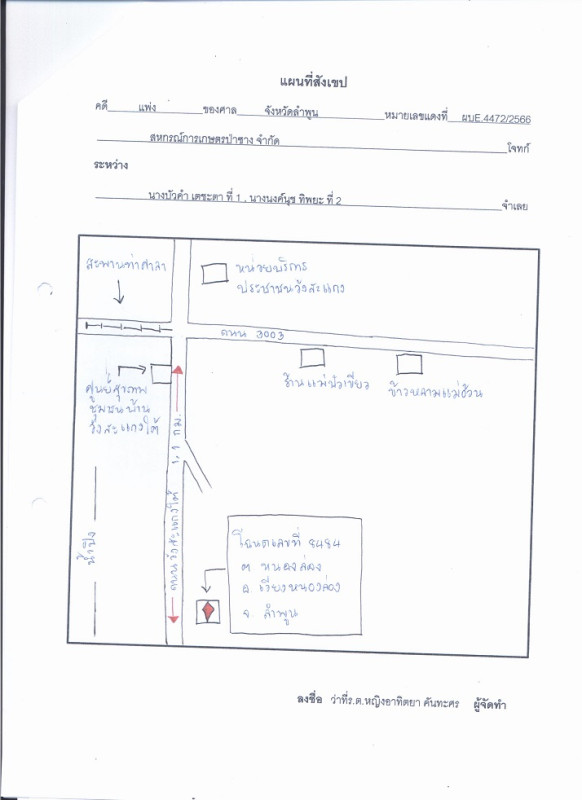 แผนที่สังเขป
คดี แพ่ง ของศาล จังหวัดลำพูน หมายเลขแดงที่ ผบE.4472/2566
สหกรณ์การเกษตรป่าซาง จำกัด โจทก์
ระหว่าง
นางบัวคำ เตชะตา ที่ 1 . นางนงค์นุช ทิพยะ ที่ 2 จำเลย
สะพานท่าศาลา
หน่วยบริการ
ประชาชนวังสะแกง
ถนน 3003
ร้านแม่บัวเขียว
ข้าวหลามแม่อ้วน
ศูนย์สุขภาพ
ชุมชนบ้าน
วังสะแกงใต้
1.1 กม.
ถนนวังสะแกงใต้
น้ำปิง
โฉนดเลขที่ 8484
ต. หนองล่อง
อ. เวียงหนองล่อง
จ. ลำพูน
ลงชื่อ ว่าที่ร.ต.หญิงอาทิตยา คันทะศร ผู้จัดทำ